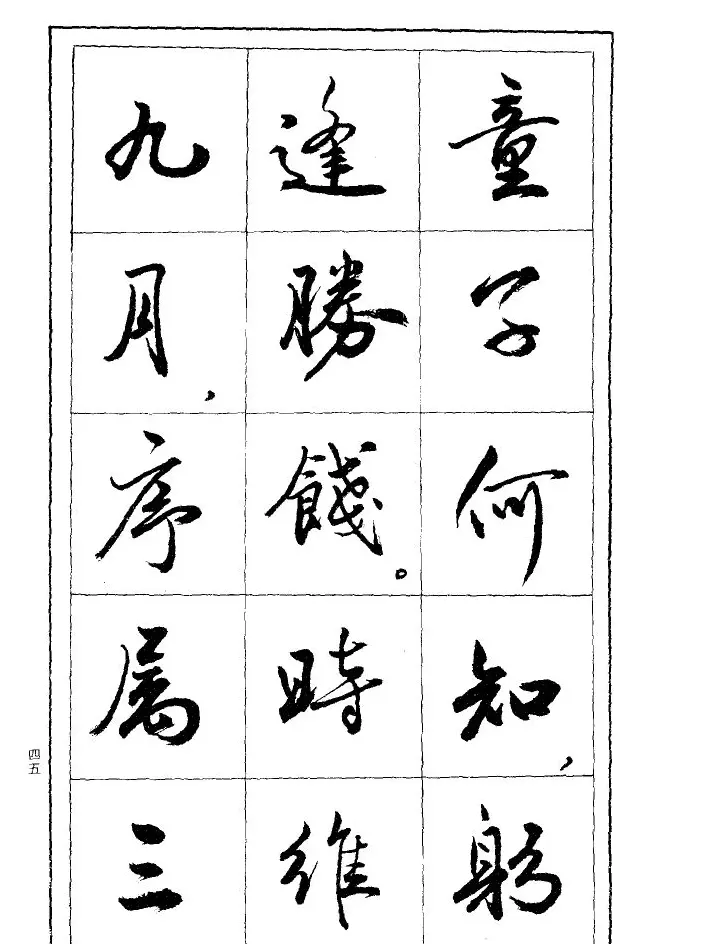 童子何知，躬
逢勝餞。時維
九月，序属三
四五